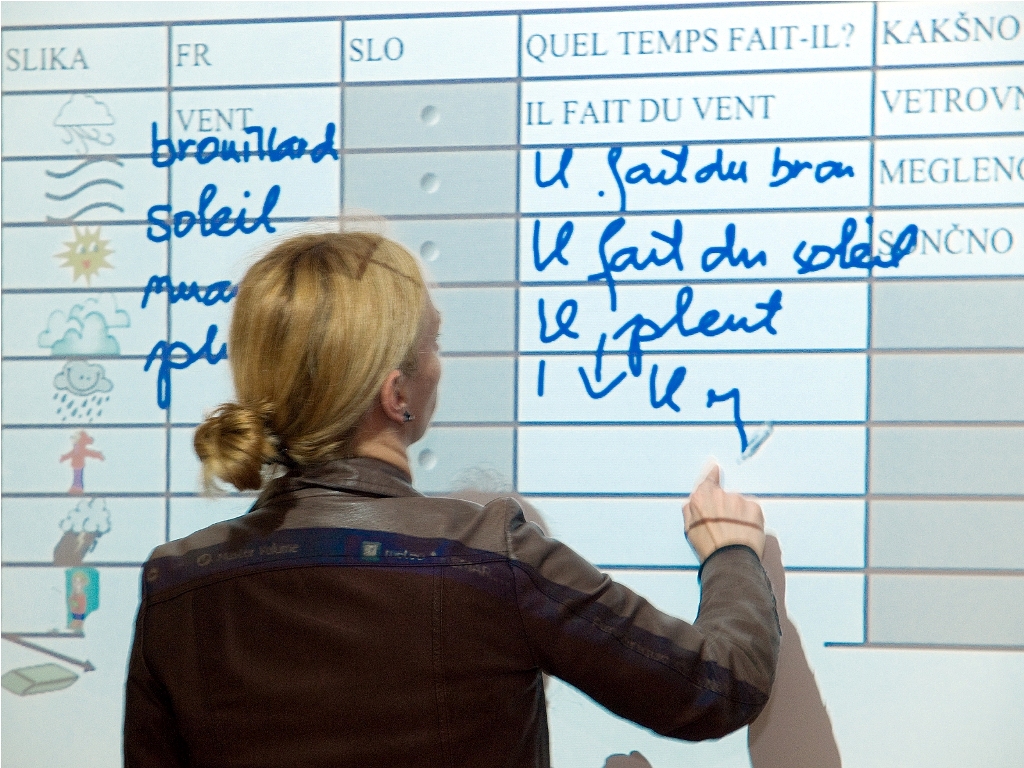 SLIKA FR SLO QUEL TEMPS FAIT-IL? KAKŠNO
VENT IL FAIT DU VENT VETROVN
brouillard Il fait du brou MEGLENO
soleil Il fait du soleil SONČNO
nua Il pleut
plu Il y
Master Volume